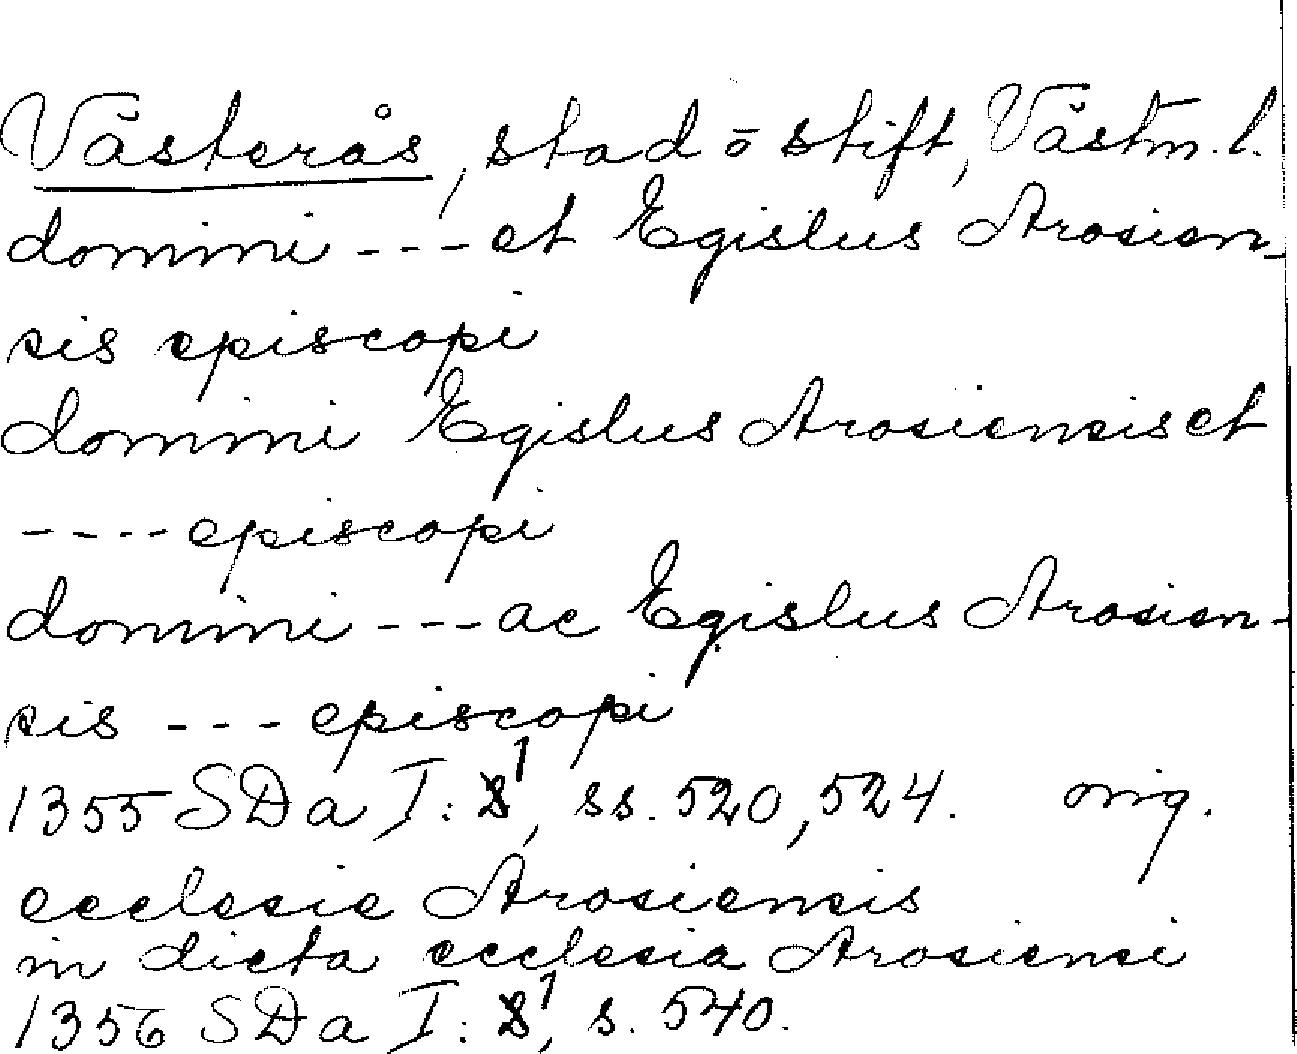 Västerås, stad o stift, Västm. l.
domini --- et Egislus Arosien-
sis episcopi
domini Egislus Arosiensis et
---- episcopi
domini --- ac Egislus Arosien-
sis --- episcopi
1355 SDa I: 1, ss. 520, 524. orig.
ecclesie Arosiensis
in dicta ecclesia Arosiensi
1356 SDa I: 1, s. 540.